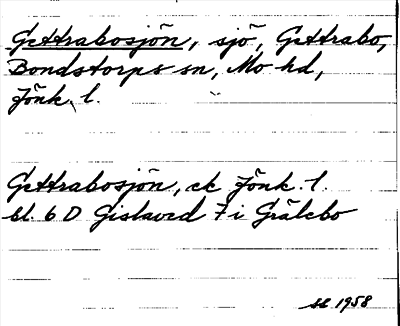 Gettrabosjön, sjö, Gettrabo,
Bondstorps sn, Mo hd,
Jönk. l.
Gettrabosjön, ek Jönk. l.
bl. 6 D Gislaved 7 i Grälebo
1958